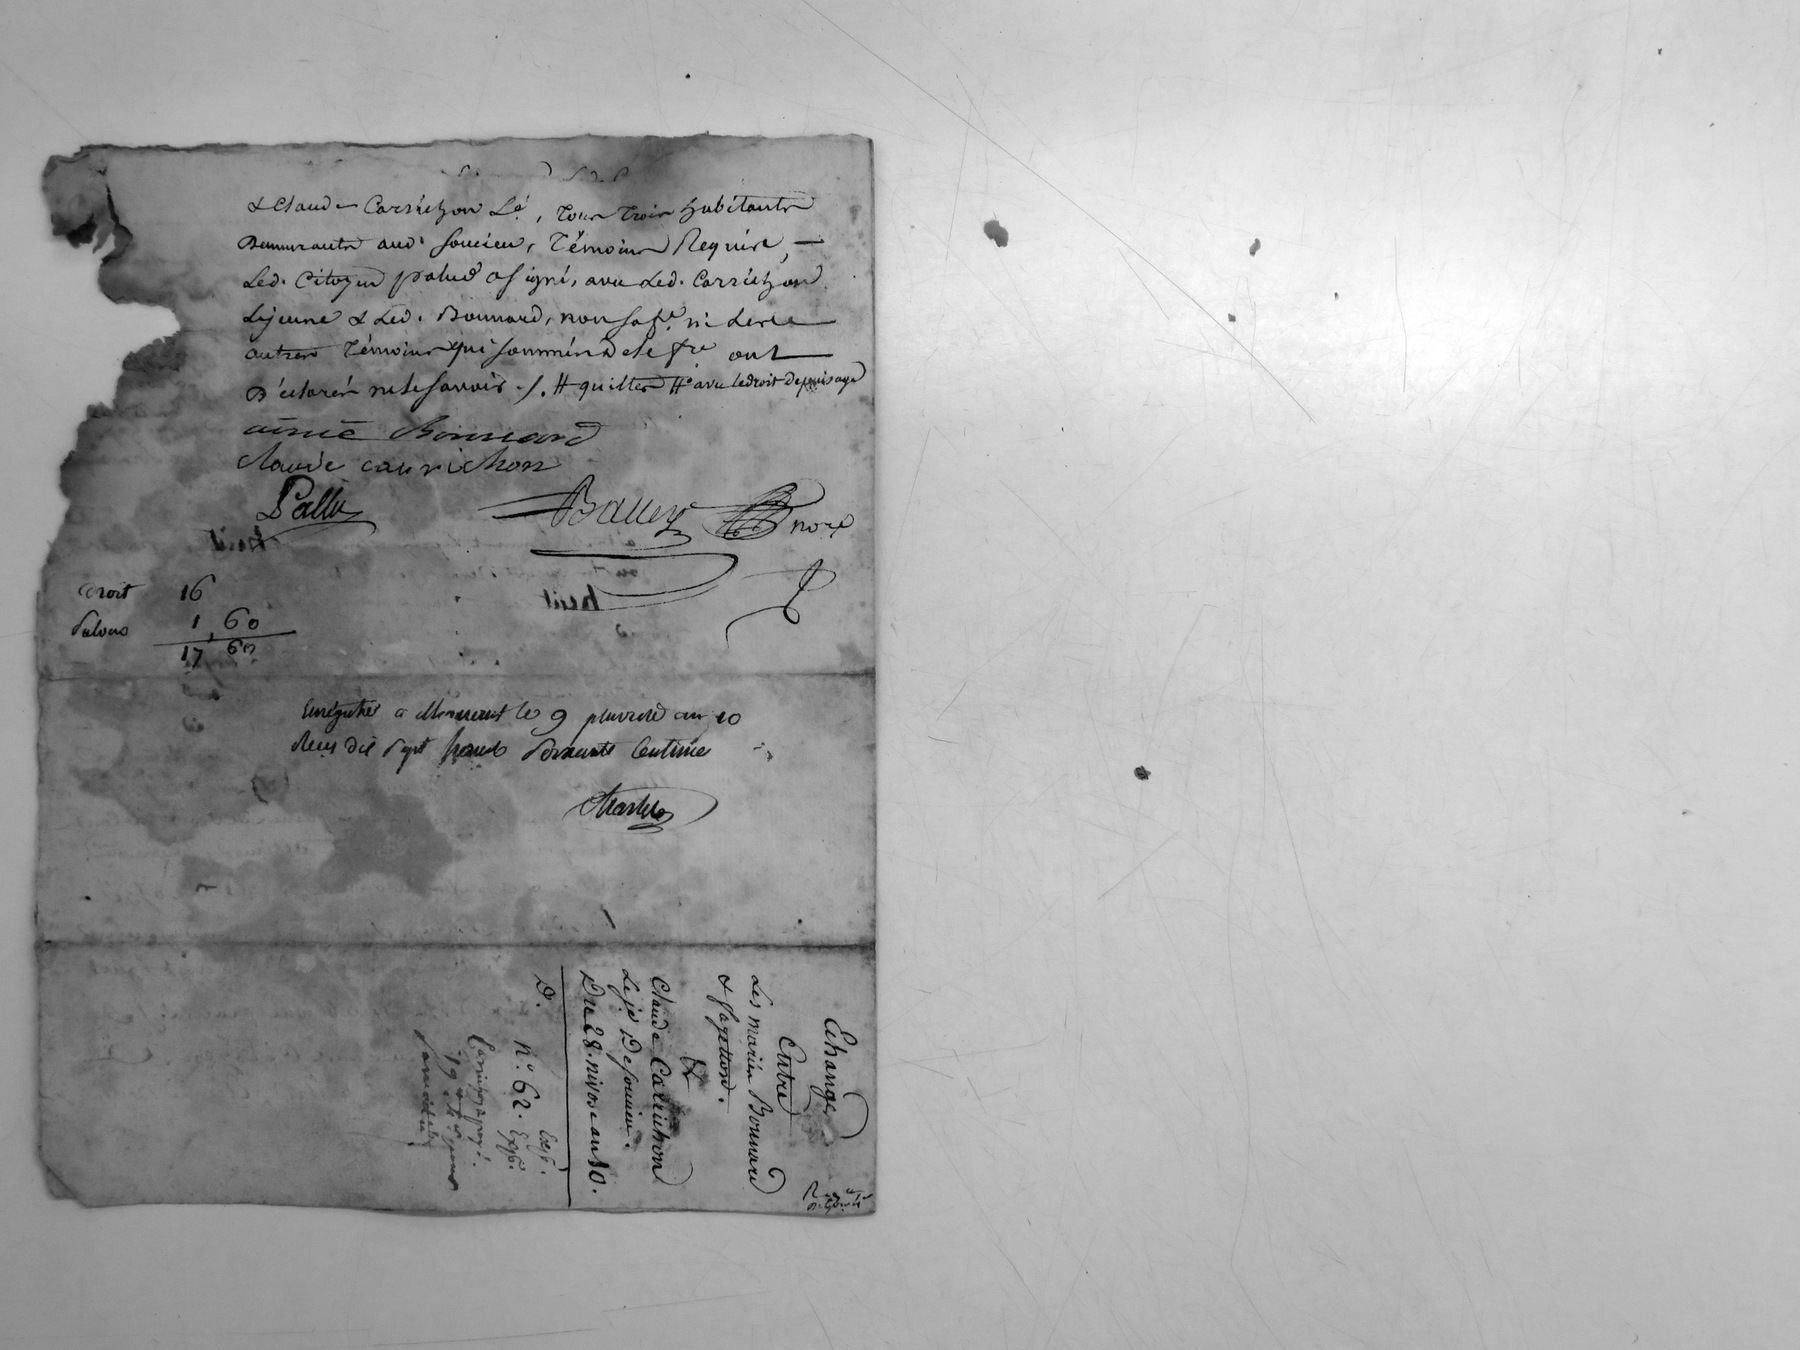 & Claude Carrichon L.é, Tous Trois habitants
Demeurants aud. Soucieu, Témoins Requis, —
Led. Citoyen palud a signé, avec Led. Carrichon
Lejeune & Led. Bonnard, non sa fe. ni Les
autres Témoins qui sommés de le fre ont
Déclarés ne le savoir ./. # quittes ## avec le droit de puisage
aimé Bonnard
claude carrichon
Pallu
Balley nore
Droit 16
Subvens 1, 60
17 60
Enregistré a Mornant le 9 pluviose an 10
Recu dix sept francs soixante Centimes
Echange
Entre
Les mariés Bonnard
& fayetton.
&
Claude Carrichon
Le je. De Soucieu.
Du 28. nivose an 10.
D.
n.º 62. Exp.é
Exp.é